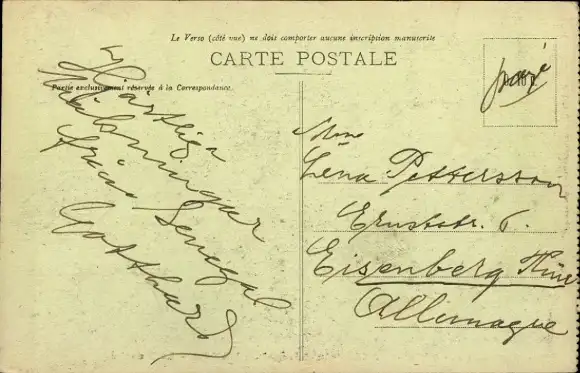 Le Verso (côté vue) ne doit comporter aucune inscription manuscrite
CARTE POSTALE
Partie exclusivement réservée à la Correspondance.
Hjärtliga
hälsningar
från Senegal
Gotthard
payé
Mme
Lena Pettersson
Ernststr. 6.
Eisenberg Thür
Allemagne